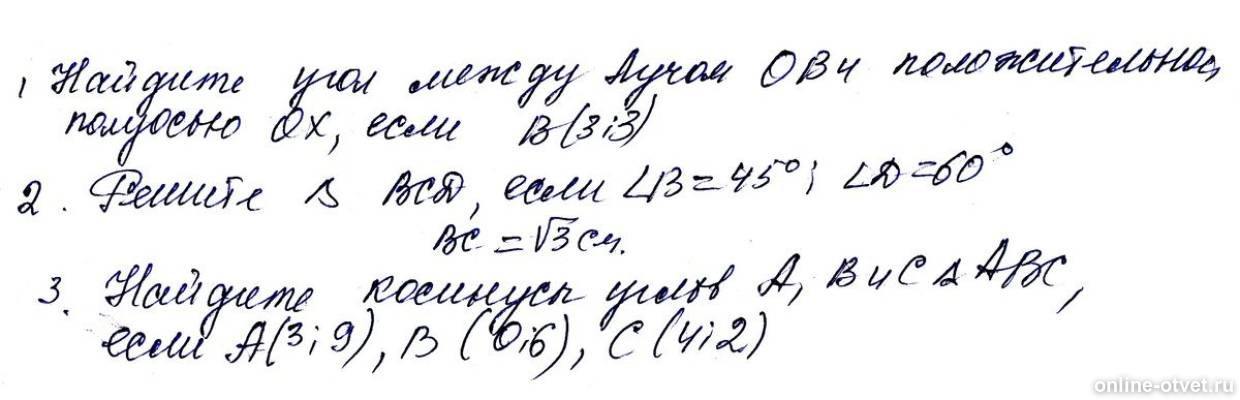 1 Найдите угол между лучом ОВ и положительной
полуосью ОХ, если В(3;3)
2. Решите Δ ВСD, если ∠В=45°; ∠D=60°
ВС=√3 см.
3. Найдите косинусы углов А, В и С Δ АВС,
если А(3;9), В (0;6), С (4;2)
online-otvet.ru